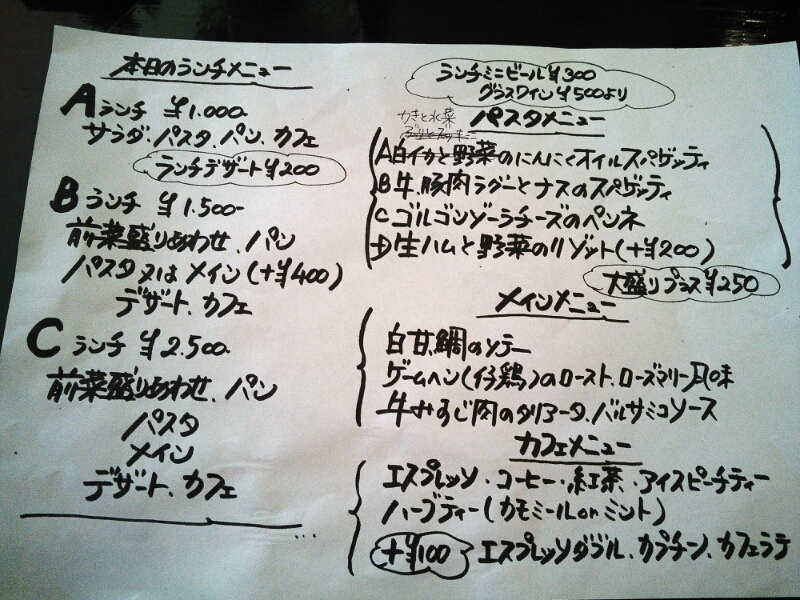 本日のランチメニュー
A ランチ ¥1.000-
サラダ、パスタ、パン、カフェ
ランチデザート¥200
B ランチ ¥1.500-
前菜盛りあわせ、パン
パスタ又はメイン(+¥400)
デザート、カフェ
C ランチ ¥2.500-
前菜盛りあわせ、パン
パスタ
メイン
デザート、カフェ
ランチミニビール¥300
グラスワイン¥500より
かきと水菜
パスタメニュー
A白イカと野菜のにんにくオイルスパゲッティ
B牛、豚肉ラグーとナスのスパゲッティ
Cゴルゴンゾーラチーズのペンネ
D生ハムと野菜のリゾット(+¥200)
大盛りプラス¥250
メインメニュー
白甘鯛のソテー
ゲームヘン(仔鶏)のロースト、ローズマリー風味
牛みすじ肉のタリアータ、バルサミコソース
カフェメニュー
エスプレッソ・コーヒー・紅茶・アイスピーチティー
ハーブティー(カモミールorミント)
+¥100 エスプレッソダブル、カプチーノ、カフェラテ